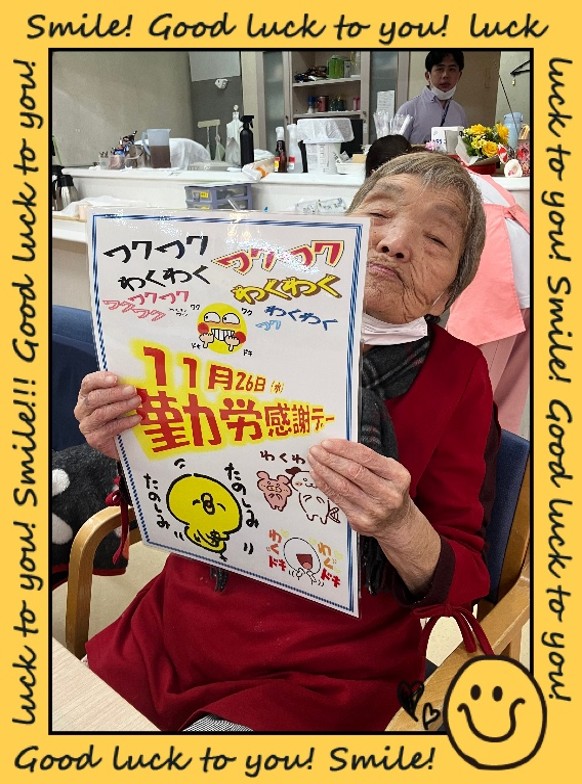 Smile! Good luck to you! luck
luck to you! Smile!!! Good luck to you!
luck to you! Smile! Good luck to you!
ワクワク
わくわく
ワクワク
ワクワク
ワクワク
わくわく
わくわく
ワク
ワク
ワク
ドキ
ドキ
11月26日(水)
勤労感謝デー
たのしみ
たのしみ
わくわく
ドキ
ドキ
Good luck to you! Smile!